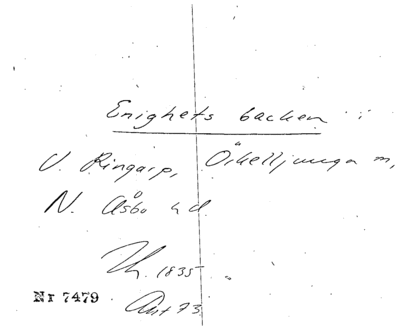 Enighets backen
V. Ringarp, Örkelljunga sn,
N. Åsbo hd.
Th. 1835
Nr 7479